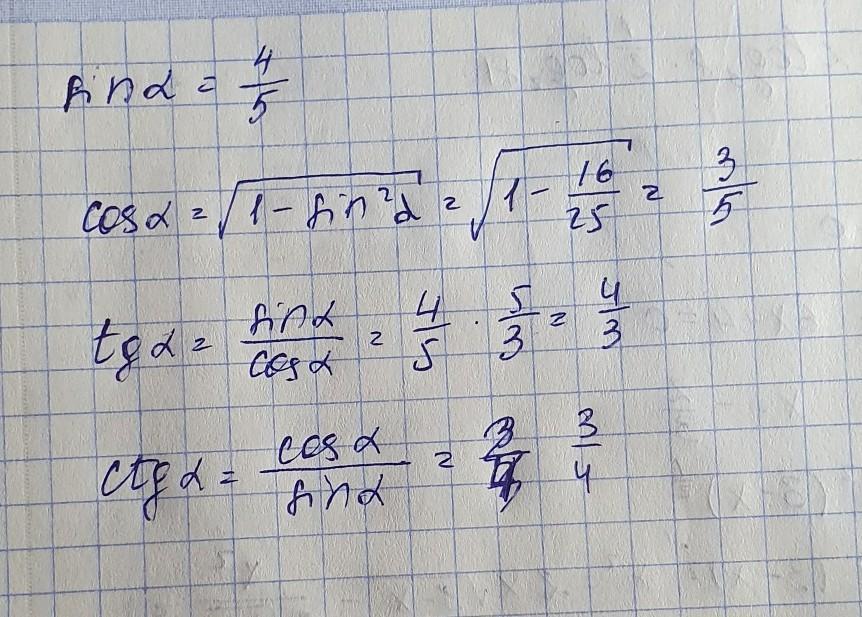 sin α = 4/5
cos α = √(1 - sin²α) = √(1 - 16/25) = 3/5
tg α = sin α/cos α = 4/5 · 5/3 = 4/3
ctg α = cos α/sin α = 3/4